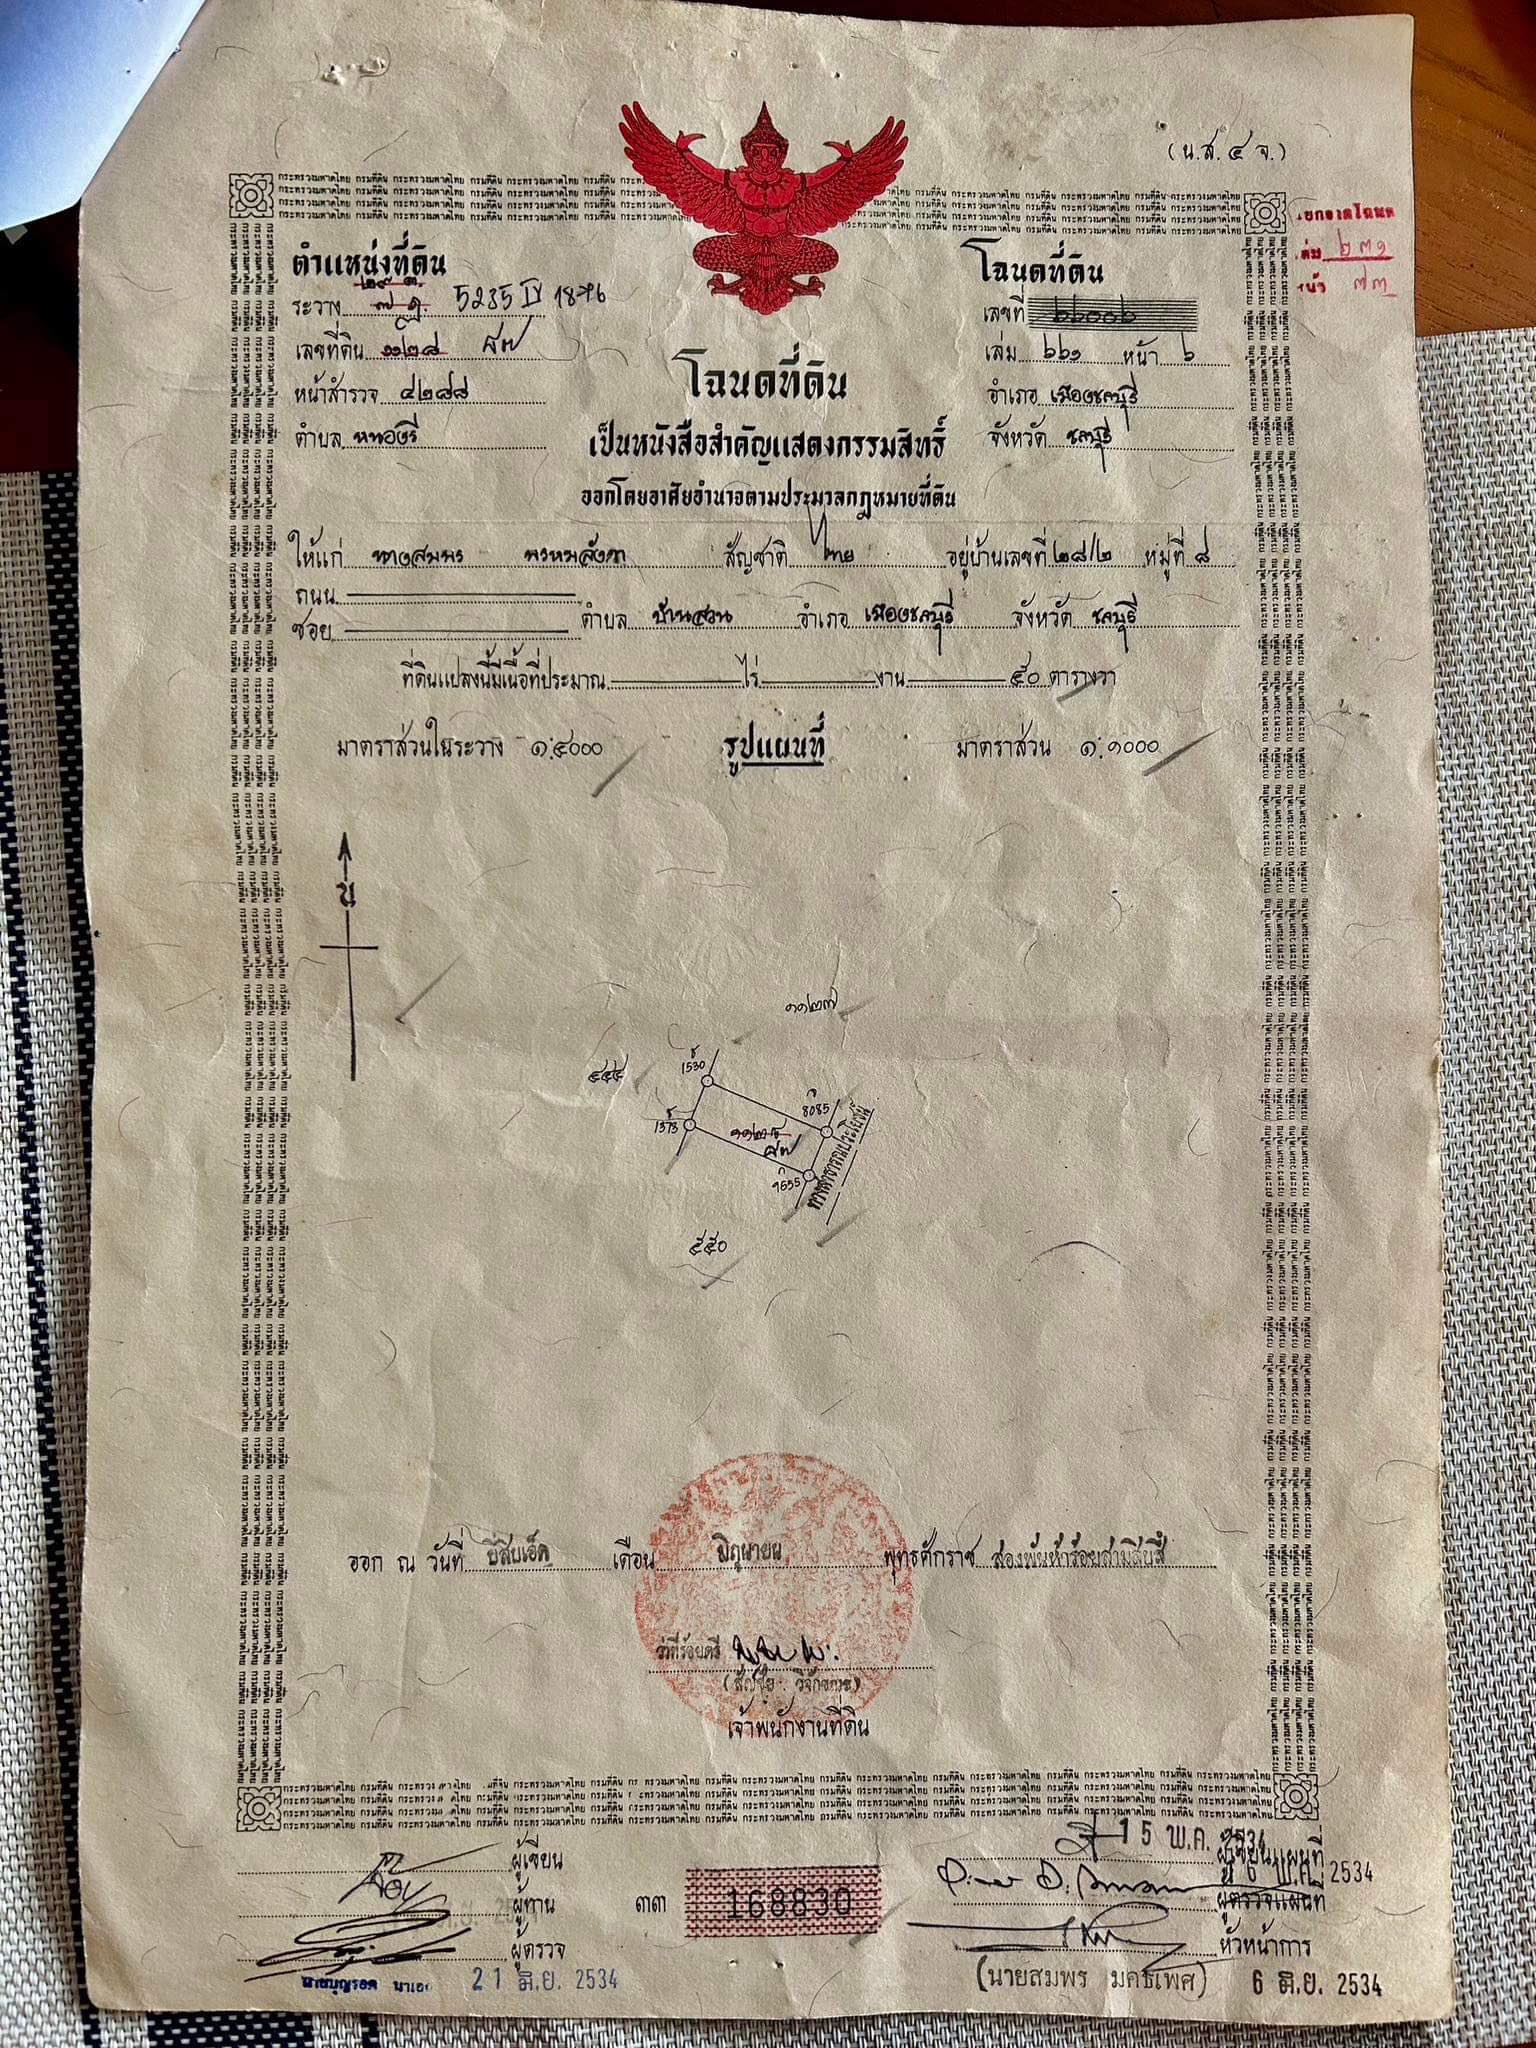 (น.ส. ๔ จ.)
ตำแหน่งที่ดิน
ระวาง 5235 IV 18-76
เลขที่ดิน ๑๑๒๘ ๕๗
หน้าสำรวจ ๔๒๘๘
ตำบล หนองรี
โฉนดที่ดิน
เลขที่ ๖๖๑๐๖
เล่ม ๖๖๑ หน้า ๖
อำเภอ เมืองชลบุรี
จังหวัด ชลบุรี
เล่ม ๒๓๑
หน้า ๗๓
โฉนดที่ดิน
เป็นหนังสือสำคัญแสดงกรรมสิทธิ์
ออกโดยอาศัยอำนาจตามประมวลกฎหมายที่ดิน
ให้แก่ นางสมพร พรหมลังกา สัญชาติ ไทย อยู่บ้านเลขที่ ๒๘/๒ หมู่ที่ ๘
ถนน
ซอย ตำบล บ้านสวน อำเภอ เมืองชลบุรี จังหวัด ชลบุรี
ที่ดินแปลงนี้มีเนื้อที่ประมาณ ไร่ งาน ๕๐ ตารางวา
มาตราส่วนในระวาง ๑:๔๐๐๐ รูปแผนที่ มาตราส่วน ๑:๑๐๐๐
น
๑๑๒๗
1530
8085
1373
๑๑๒๘
๕๗
ทางสาธารณประโยชน์
๕๕๐
ออก ณ วันที่ ยี่สิบเอ็ด เดือน มิถุนายน พุทธศักราช สองพันห้าร้อยสามสิบสี่
ว่าที่ร้อยตรี
เจ้าพนักงานที่ดิน
15 พ.ค. 2534
ผู้เขียน
ผู้เขียนแผนที่
ผู้ทาน
๓๓
168830
ผู้ตรวจแผนที่
ผู้ตรวจ
หัวหน้าการ
21 มิ.ย. 2534
(นายสมพร มคธเพศ) 6 มิ.ย. 2534